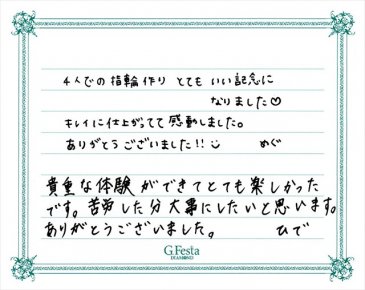 4人での指輪作り とても いい記念に
なりました♡
キレイに仕上がってて感動しました。
ありがとうございました!! めぐ
貴重な体験ができてとても楽しかった
です。苦労した分大事にしたいと思います。
ありがとうございました。 ひで
G.Festa
DIAMOND